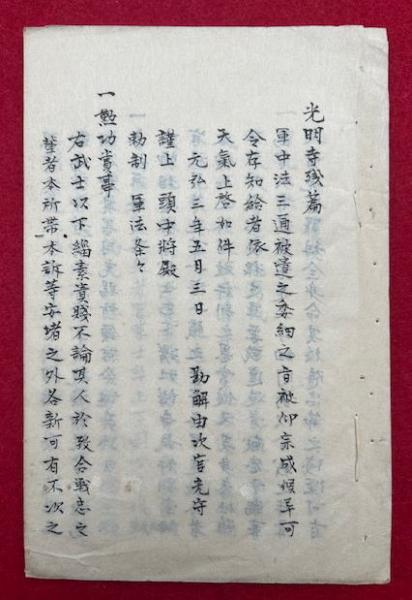 光明寺残篇
軍中法三通被遣之委細之旨被仰宗成候畢可
令存知給者依
天氣上啓如件
元弘三年五月三日 勘解由次官光守
謹上 頭中将殿
勅制 軍法条々
一勲功賞事
右武士以下緇素貴賤不論其人於致合戦忠之
輩者本所帯本訴等安堵之外各新可有不次之